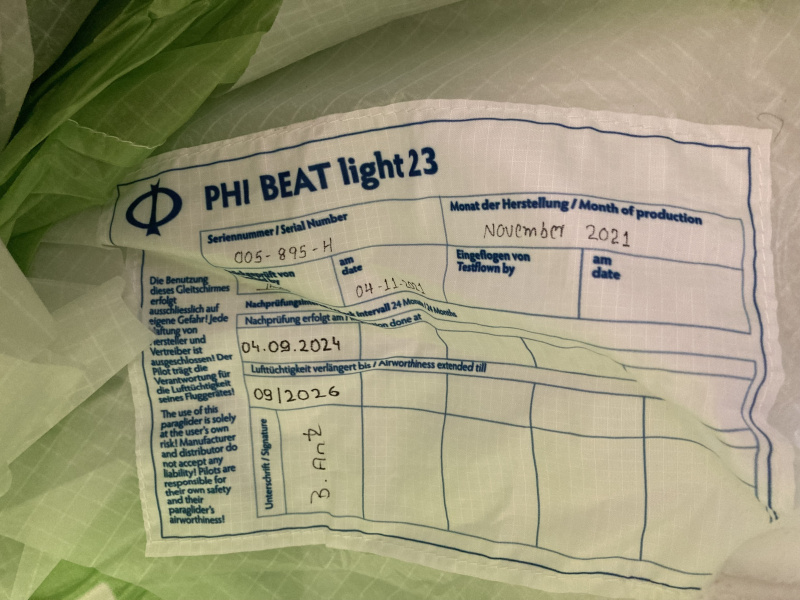 PHI BEAT light 23
Seriennummer / Serial Number
005-895-H
Monat der Herstellung / Month of production
November 2021
von
by
am
date
04-11-2021
Eingeflogen von
Testflown by
am
date
Intervall 24 Monate / 24 Months
Nachprüfung erfolgt am
on done at
04.09.2024
Lufttüchtigkeit verlängert bis / Airworthiness extended till
09/2026
Unterschrift / Signature
B. Antz
Die Benutzung
dieses Gleitschirmes
erfolgt
ausschliesslich auf
eigene Gefahr! Jede
Haftung von
Hersteller und
Vertreiber ist
ausgeschlossen! Der
Pilot trägt die
Verantwortung für
die Lufttüchtigkeit
seines Fluggerätes!
The use of this
paraglider is solely
at the user's own
risk! Manufacturer
and distributor do
not accept any
liability! Pilots are
responsible for
their own safety
and their
paraglider's
airworthiness!